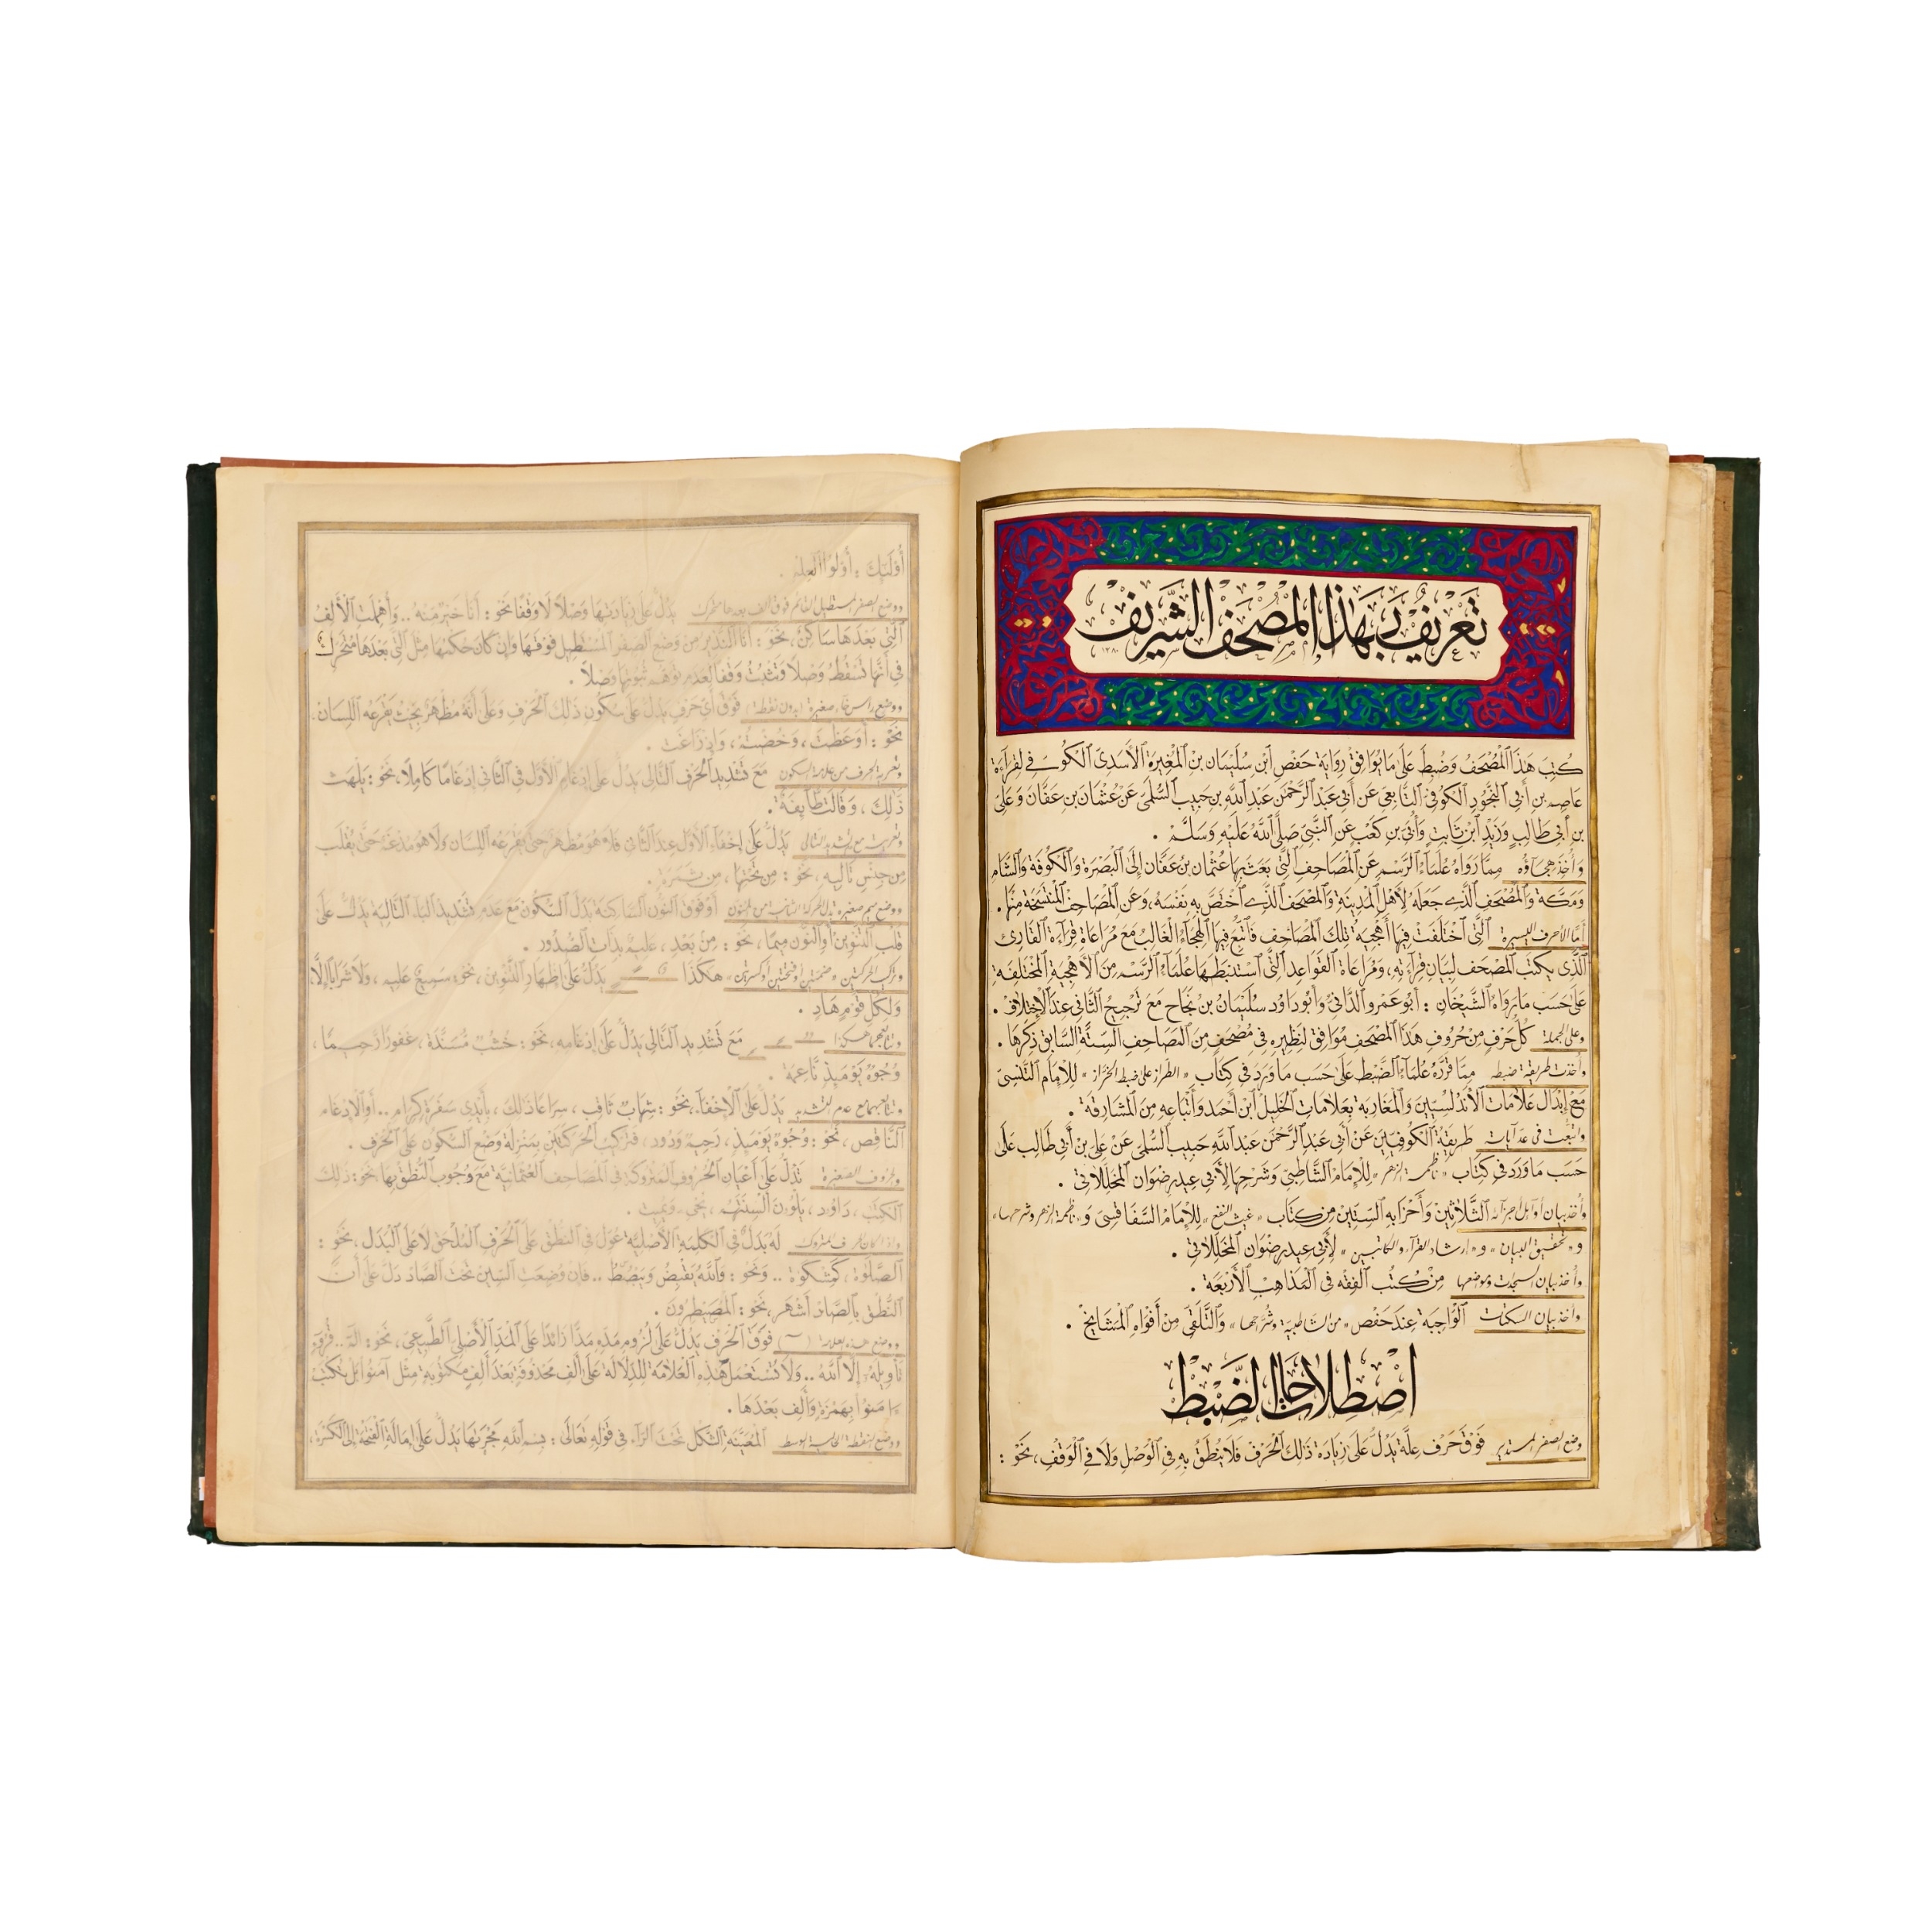 تَعْرِيفٌ بِهَٰذَا الْمُصْحَفِ الشَّرِيفِ
كُتِبَ هَٰذَا ٱلْمُصْحَفُ وَضُبِطَ عَلَىٰ مَا يُوَافِقُ رِوَايَةَ حَفْصِ ٱبْنِ سُلَيْمَان بْنِ ٱلْمُغِيرَةِ ٱلْأَسَدِىِّ ٱلْكُوفِي لِقِرَاءَةِ
عَاصِمِ بنِ أَبِي ٱلنَّجُودِ ٱلْكُوفِيِّ ٱلتَّابِعِي عَن أَبِي عَبْدِ ٱلرَّحْمٰنِ عَبْدِ ٱللَّهِ بنِ حَبِيبٍ ٱلسُّلَمِيِّ عَنْ عُثْمَانَ بنِ عَفَّانَ وَعَلِيِّ
بنِ أَبِي طَالِبٍ وَزَيْدِ ٱبْنِ ثَابِتٍ وَأُبَيِّ بنِ كَعْبٍ عَنِ ٱلنَّبِيِّ صَلَّى ٱللَّهُ عَلَيْهِ وَسَلَّمَ .
وَأُخِذَ هِجَاؤُهُ مِمَّا رَوَاهُ عُلَمَاءُ ٱلرَّسْمِ عَنِ ٱلْمَصَاحِفِ ٱلَّتِي بَعَثَ بِهَا عُثْمَان بنُ عَفَّان إِلَى ٱلْبَصْرَةِ وَٱلْكُوفَةِ وَٱلشَّامِ
وَمَكَّةَ وَٱلْمُصْحَفِ ٱلَّذِي جَعَلَهُ لِأَهْلِ ٱلْمَدِينَةِ وَٱلْمُصْحَفِ ٱلَّذِي ٱخْتَصَّ بِهِ نَفْسَهُ، وَعَنِ ٱلْمَصَاحِفِ ٱلْمُنْتَسَخَةِ مِنْهَا .
أمّا الأحرف اليسيرة ٱلَّتِي ٱخْتَلَفَتْ فِيهَا أَهْجِيَةُ تِلْكَ ٱلْمَصَاحِفِ فَٱتُّبِعَ فِيهَا ٱلْهِجَاءُ ٱلْغَالِبُ مَعَ مُرَاعَاةِ قِرَاءَةِ ٱلْقَارِئِ
ٱلَّذِي يُكْتَبُ ٱلْمُصْحَفُ لِبَيَانِ قِرَاءَتِهِ، وَمُرَاعَاةِ ٱلْقَوَاعِدِ ٱلَّتِي ٱسْتَنْبَطَهَا عُلَمَاءُ ٱلرَّسْمِ مِنَ ٱلْأَهْجِيَةِ ٱلْمُخْتَلِفَةِ
عَلَىٰ حَسَبِ مَا رَوَاهُ ٱلشَّيْخَانِ : أَبُو عَمْرٍو ٱلدَّانِيُّ وَأَبُو دَاوُد سُلَيْمَانُ بْنُ نَجَاحٍ مَعَ تَرْجِيحِ ٱلثَّانِي عِنْدَ ٱلْاِخْتِلَافِ .
وعلى الجملة كُلُّ حَرْفٍ مِنْ حُرُوفِ هَٰذَا ٱلْمُصْحَفِ مُوَافِقٌ لِنَظِيرِهِ فِي مُصْحَفٍ مِنَ ٱلْمَصَاحِفِ ٱلسِّتَّةِ ٱلسَّابِقِ ذِكْرُهَا .
وأخذت طريقة ضبطه مِمَّا قَرَّرَهُ عُلَمَاءُ ٱلضَّبْطِ عَلَىٰ حَسَبِ مَا وَرَدَ فِي كِتَابِ « الطراز على ضبط الخرّاز » لِلْإِمَامِ ٱلتَّنَسِيِّ
مَعَ إِبْدَالِ عَلَامَاتِ ٱلْأَنْدَلُسِيِّينَ وَٱلْمَغَارِبَةِ بِعَلَامَاتِ ٱلْخَلِيلِ ٱبْنِ أَحْمَد وَأَتْبَاعِهِ مِنَ ٱلْمَشَارِقَةِ .
واتبعت في عدّ آياته طَرِيقَةُ ٱلْكُوفِيِّينَ عَنْ أَبِي عَبْدِ ٱلرَّحْمٰنِ عَبْدِ ٱللَّهِ حَبِيبٍ ٱلسُّلَمِي عَنْ عَلِيِّ بنِ أَبِي طَالِبٍ عَلَىٰ
حَسَبِ مَا وَرَدَ فِي كِتَابِ « ناظمة الزهر » لِلْإِمَامِ ٱلشَّاطِبِيِّ وَشَرْحِهَا لِأَبِي عِيدٍ رِضْوَان ٱلْمُخَلِّلَاتِيِّ .
وأخذ بيان أوائل أجزائه ٱلثَّلَاثِينَ وَأَحْزَابِهِ ٱلسِّتِّينَ مِنْ كِتَابِ « غيث النفع » لِلْإِمَامِ ٱلسَّفَاقُسِيِّ وَ « ناظمة الزهر وشرحها »
و « تحقيق البيان » و « إرشاد القرّاء والكاتبين » لِأَبِي عِيدٍ رِضْوَان ٱلْمُخَلِّلَاتِيِّ .
وأخذ بيان السجدات ومواضعها مِنْ كُتُبِ ٱلْفِقْهِ فِي ٱلْمَذَاهِبِ ٱلْأَرْبَعَةِ .
وأخذ بيان السكتات ٱلْوَاجِبَةِ عِنْدَ حَفْصٍ « من الشاطبية وشرّاحها » وَٱلتَّلَقِّي مِنْ أَفْوَاهِ ٱلْمَشَايِخِ .
اصْطِلَاحَاتُ الضَّبْطِ
وضع الصفر المستدير فَوْقَ حَرْفِ عِلَّةٍ يَدُلُّ عَلَىٰ زِيَادَةِ ذَٰلِكَ ٱلْحَرْفِ فَلَا يُنْطَقُ بِهِ فِي ٱلْوَصْلِ وَلَا فِي ٱلْوَقْفِ، نَحْوُ :
أُوْلَٰئِكَ ، أُوْلُواْ ٱلْعِلْمِ .
ووضع الصفر المستطيل القائم فوق ألف بعدها متحرك يَدُلُّ عَلَىٰ زِيَادَتِهَا وَصْلًا لَا وَقْفًا نَحْوُ : أَنَا خَيْرٌ مِنْهُ .. وَأُهْمِلَتِ ٱلْأَلِفُ
ٱلَّتِي بَعْدَهَا سَاكِنٌ، نَحْوُ : أَنَا ٱلنَّذِيرُ مِنْ وَضْعِ ٱلصِّفْرِ ٱلْمُسْتَطِيلِ فَوْقَهَا وَإِنْ كَانَ حُكْمُهَا مِثْلَ ٱلَّتِي بَعْدَهَا مُتَحَرِّكٌ
فِي أَنَّهَا تَسْقُطُ وَصْلًا وَتَثْبُتُ وَقْفًا لِعَدَمِ تَوَهُّمِ ثُبُوتِهَا وَصْلًا .
ووضع رأس خاء صغيرة (بدون نقطة) فَوْقَ أَيِّ حَرْفٍ يَدُلُّ عَلَىٰ سُكُونِ ذَٰلِكَ ٱلْحَرْفِ وَعَلَىٰ أَنَّهُ مُظْهَرٌ بِحَيْثُ يَقْرَعُهُ ٱللِّسَانُ
نَحْوُ : أَوَعَظْتَ ، وَخُضْتُمْ ، وَإِذْ زَاغَتْ .
وتعرية الحرف من علامة السكون مَعَ تَشْدِيدِ ٱلْحَرْفِ ٱلتَّالِي يَدُلُّ عَلَىٰ إِدْغَامِ ٱلْأَوَّلِ فِي ٱلثَّانِي إِدْغَامًا كَامِلًا، نَحْوُ : يَلْهَث
ذَّٰلِكَ ، وَقَالَت طَّائِفَةٌ .
وتعريته مع عدم تشديد التالي يَدُلُّ عَلَىٰ إِخْفَاءِ ٱلْأَوَّلِ عِنْدَ ٱلثَّانِي فَلَا هُوَ مُظْهَرٌ حَتَّىٰ يَقْرَعَهُ ٱللِّسَانُ وَلَا هُوَ مُدْغَمٌ حَتَّىٰ يُقْلَبَ
مِنْ جِنْسِ تَالِيهِ، نَحْوُ : مِن تَحْتِهَا ، مِن ثَمَرَةٍ .
قَلْبِ ٱلتَّنْوِينِ أَوِ ٱلنُّونِ مِيمًا، نَحْوُ : مِنۢ بَعْدِ ، عَلِيمٌۢ بِذَاتِ ٱلصُّدُورِ .
وتركيب الحركتين « ضمتين أو فتحتين أو كسرتين » هَٰكَذَا يَدُلُّ عَلَىٰ إِظْهَارِ ٱلتَّنْوِينِ، نَحْوُ: سَمِيعٌ عَلِيمٌ ، وَلَا شَرَابًا إِلَّا
وَلِكُلِّ قَوْمٍ هَادٍ .
وتتابعهما هكذا مَعَ تَشْدِيدِ ٱلتَّالِي يَدُلُّ عَلَىٰ إِدْغَامِهِ، نَحْوُ : خُشُبٌ مُّسَنَّدَةٌ ، غَفُورًا رَّحِيمًا ،
وُجُوهٌ يَوْمَئِذٍ نَّاعِمَةٌ .
وتتابعهما مع عدم التشديد يَدُلُّ عَلَى ٱلْإِخْفَاءِ، نَحْوُ : شِهَابٌ ثَاقِبٌ ، سِرَاعًا ذَٰلِكَ ، بِأَيْدِي سَفَرَةٍ كِرَامٍ .. أَوِ ٱلْإِدْغَامِ
ٱلنَّاقِصِ ، نَحْوُ : وُجُوهٌ يَوْمَئِذٍ ، رَحِيمٌ وَدُودٌ ، فَتَرْكِيبُ ٱلْحَرَكَتَيْنِ بِمَنْزِلَةِ وَضْعِ ٱلسُّكُونِ عَلَى ٱلْحَرْفِ .
والحروف الصغيرة تَدُلُّ عَلَىٰ أَعْيَانِ ٱلْحُرُوفِ ٱلْمَتْرُوكَةِ فِي ٱلْمَصَاحِفِ ٱلْعُثْمَانِيَّةِ مَعَ وُجُوبِ ٱلنُّطْقِ بِهَا نَحْوُ: ذَٰلِكَ
ٱلْكِتَٰبُ ، دَاوُۥدَ ، يَلْوُۥنَ أَلْسِنَتَهُم
وإذا كان الحرف المتروك لَهُ بَدَلٌ فِي ٱلْكِتَابَةِ ٱلْأَصْلِيَّةِ عُوِّلَ فِي ٱلنُّطْقِ عَلَى ٱلْحَرْفِ ٱلْمُلْحَقِ لَا عَلَى ٱلْبَدَلِ، نَحْوُ :
ٱلصَّلَوٰةَ ، كَمِشْكَوٰةٍ .. وَنَحْوُ : وَٱللَّهُ يَقْبِضُ وَيَبْصُۜطُ .. فَإِنْ وُضِعَتِ ٱلسِّينُ تَحْتَ ٱلصَّادِ دَلَّ عَلَىٰ أَنَّ
ٱلنُّطْقَ بِٱلصَّادِ أَشْهَرُ، نَحْوُ : ٱلْمُصَيْطِرُونَ .
ووضع هذه العلامة ( ~ ) فَوْقَ ٱلْحَرْفِ يَدُلُّ عَلَىٰ لُزُومِ مَدِّهِ مَدًّا زَائِدًا عَلَى ٱلْمَدِّ ٱلْأَصْلِيِّ ٱلطَّبِيعِيِّ، نَحْوُ : الٓمٓ .. قُرُوٓءٍ
تَأْوِيلَهُۥٓ إِلَّا ٱللَّهُ .. وَلَا تُسْتَعْمَلُ هَٰذِهِ ٱلْعَلَامَةُ لِلدَّلَالَةِ عَلَىٰ أَلِفٍ مَحْذُوفَةٍ بَعْدَ أَلِفٍ مَكْتُوبَةٍ مِثْلِ آمَنُوا بَلْ تُكْتَبُ
ءَامَنُواْ بِهَمْزَةٍ وَأَلِفٍ بَعْدَهَا .
ٱلْمُعَيَّنَةِ ٱلشَّكْلِ تَحْتَ ٱلرَّاءِ فِي قَوْلِهِ تَعَالَىٰ : بِسْمِ ٱللَّهِ مَجْر۪ىٰهَا يَدُلُّ عَلَىٰ إِمَالَةِ ٱلْفَتْحَةِ إِلَى ٱلْكَسْرَةِ ،